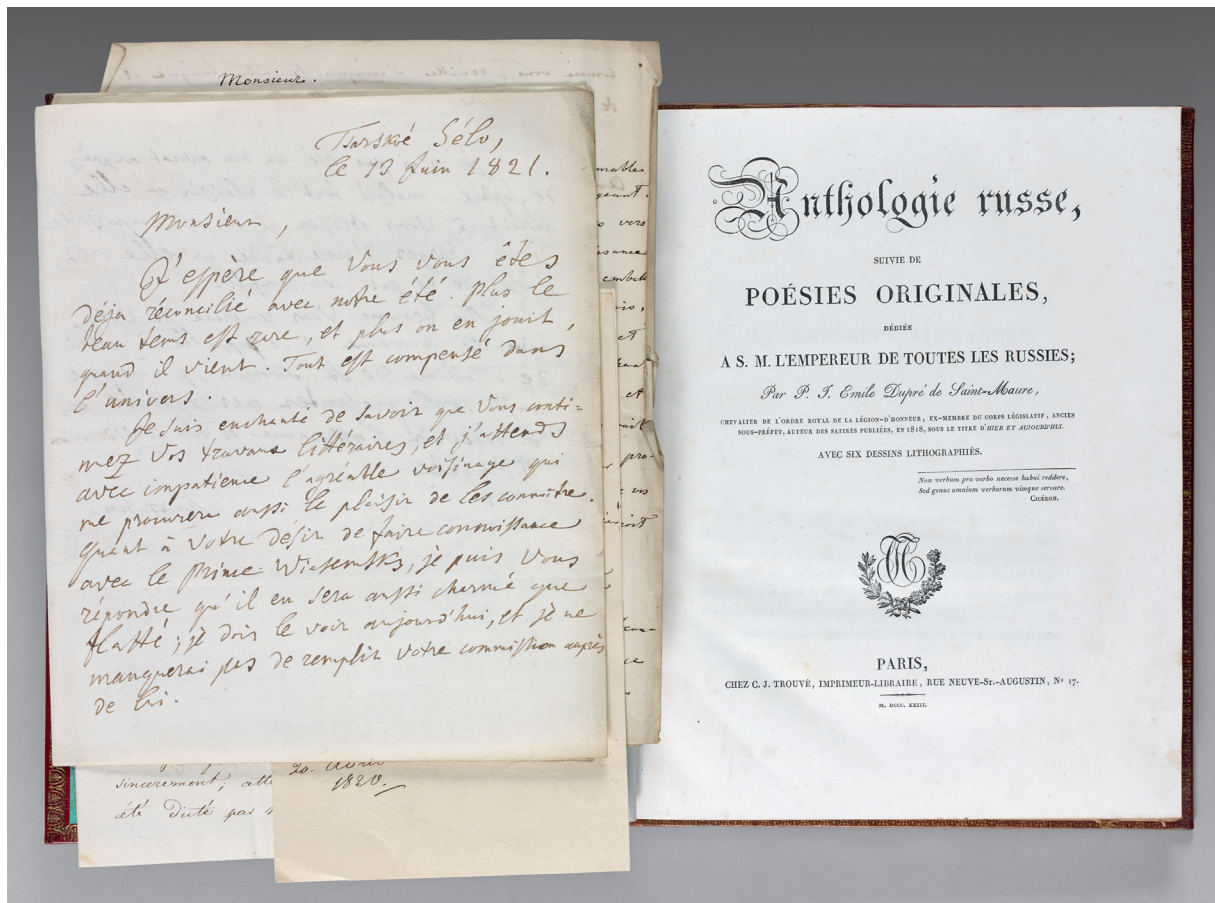 Monsieur.
Tsarskoé Sélo,
le 13 Juin 1821.
Monsieur,
J'espère que Vous vous êtes
déja réconcilié avec notre été. Plus le
beau tems est rare, et plus on en jouit,
quand il vient. Tout est compensé dans
l'univers.
Je suis enchanté de savoir que Vous conti-
nuez Vos travaux littéraires, et j'attends
avec impatience l'agréable voisinage qui
me procurera aussi le plaisir de les connoître.
Quant à Votre désir de faire connoissance
avec le Prince Wiasemsky, je puis Vous
répondre qu'il en sera aussi charmé que
flatté; je dois le voir aujourd'hui, et je ne
manquerai pas de remplir votre commission auprès
de lui.
mables
geant.
vers
et
et
pro-
sincerement,
été dicté par
20. Avril
1820.
Anthologie russe,
SUIVIE DE
POÉSIES ORIGINALES,
DÉDIÉE
A S. M. L'EMPEREUR DE TOUTES LES RUSSIES;
Par P. J. Emile Dupré de Saint-Maure,
CHEVALIER DE L'ORDRE ROYAL DE LA LÉGION-D'HONNEUR, EX-MEMBRE DU CORPS LÉGISLATIF, ANCIEN
SOUS-PRÉFET, AUTEUR DES SATIRES PUBLIÉES, EN 1818, SOUS LE TITRE D'HIER ET AUJOURD'HUI.
AVEC SIX DESSINS LITHOGRAPHIÉS.
Non verbum pro verbo necesse habui reddere,
Sed genus omnium verborum vimque servare.
CICÉRON.
PARIS,
CHEZ C. J. TROUVÉ, IMPRIMEUR-LIBRAIRE, RUE NEUVE-St.-AUGUSTIN, No 17.
M. DCCC. XXIII.